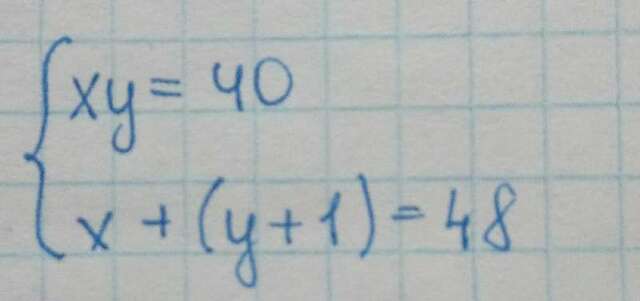 xy = 40
x + (y + 1) = 48